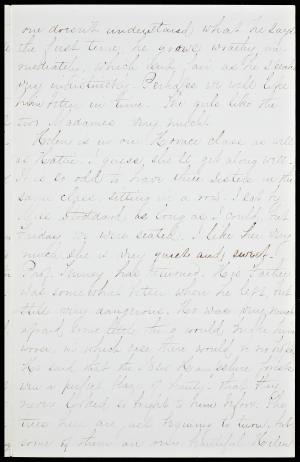 one doesn't understand what he says
the first time, he grows wrathy im-
mediately, which isn't fair as he speaks
very indistinctly. Perhaps we will like
him better in time. The girls like the
two Madames very much.
Helen is in our Horace class as well
as Hattie. I guess, she'll get along well.
It is so odd to have three sisters in the
same class sitting in a row. I sat by
Miss Goddard as long as I could, but
Friday we were seated. I like her very
much, she is very quick and sweet.
Prof. has returned. His Father
was somewhat better when he left, but
still very dangerous. He was very much
afraid some would make him
worse, in which case there would be no hope.
He said that the New Hampshire
were a perfect of beauty - that they
never looked so bright to him before. The
trees here are just beginning to turn, but
some of them are very beautiful. Helen